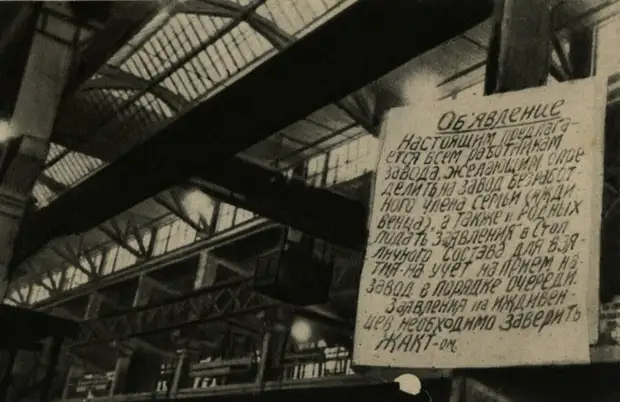 Об'явление
Настоящим предлага-
ется всем работникам
завода, желающим опре
делить на завод безработ
ного члена семьи (ижди
венца), а также и родных
подать заявления в Стол
личного состава для взя-
тия на учет на прием на
завод в порядке очереди.
Заявления на иждивен-
цев необходимо заверить
ЖАКТ-ом